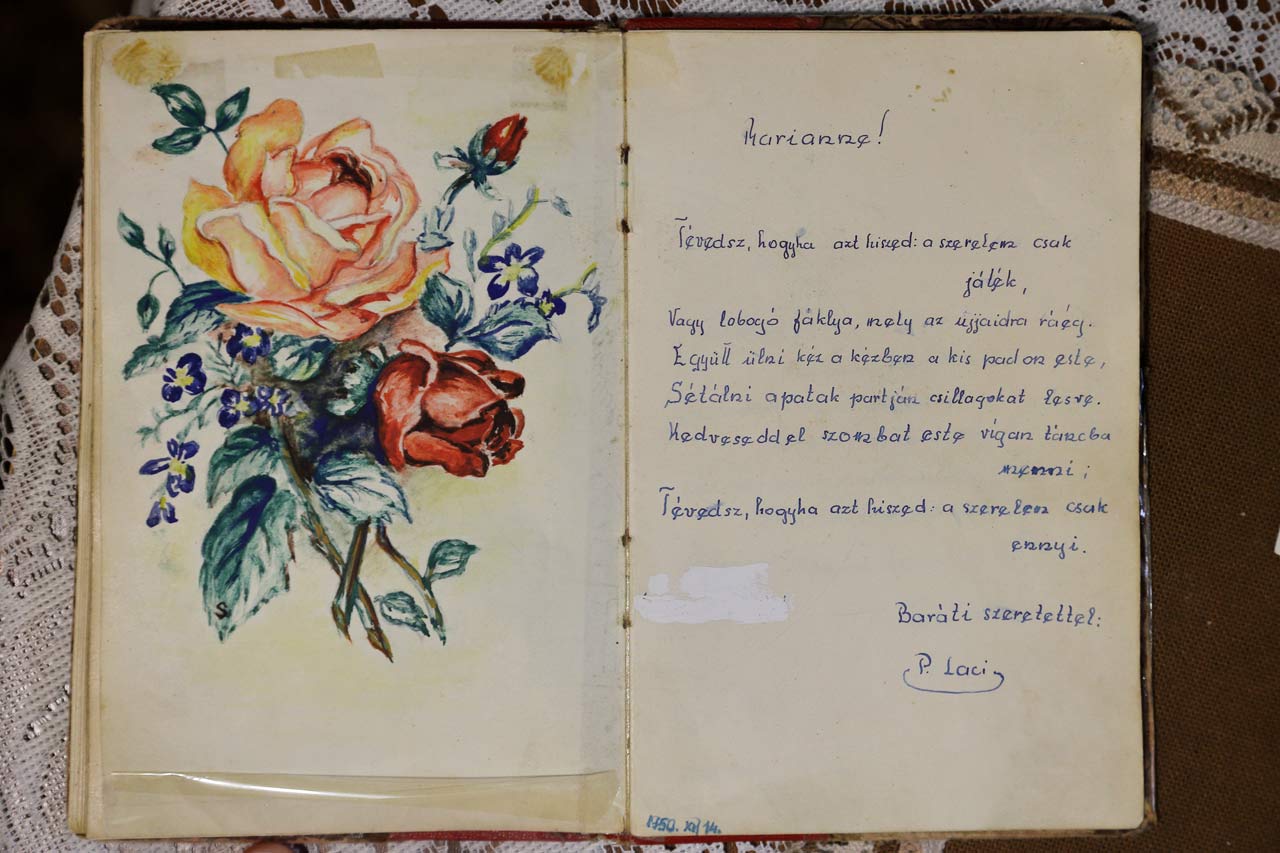 S
Marianne!
Tévedsz, hogyha azt hiszed: a szerelem csak
játék,
Vagy lobogó fáklya, mely az ujjaidra ráég.
Együtt ülni kéz a kézben a kis padon este,
Sétálni a patak partján csillagokat lesve.
Kedveseddel szombat este vígan táncba
menni;
Tévedsz, hogyha azt hiszed: a szerelem csak
ennyi.
Baráti szeretettel:
P. Laci
1950. XI/14.